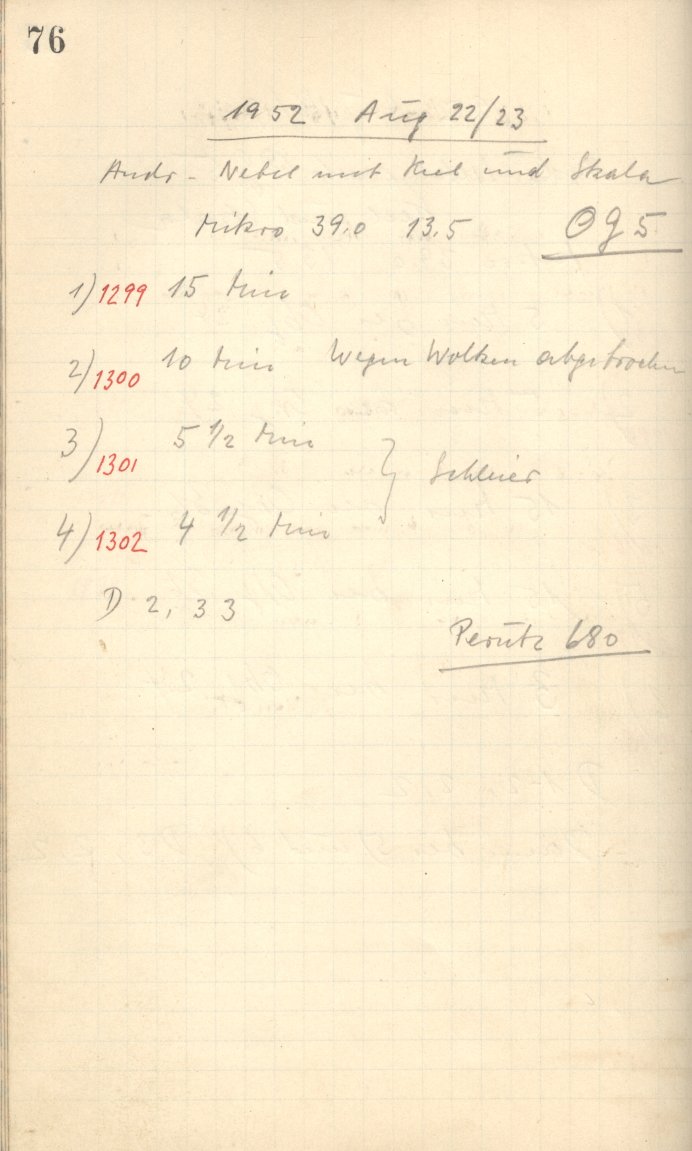 76
1952 Aug 22/23
Andr - Nebel mit Keil und Skala
Mikro 39.0 13.5 OG 5
1) 1299 15 Min
2) 1300 10 Min Wegen Wolken abgebrochen
3) 1301 5 1/2 Min
} Schleier
4) 1302 4 1/2 Min
D 2, 33
Perutz 680